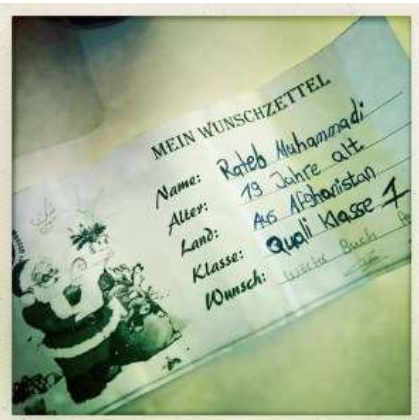 MEIN WUNSCHZETTEL
Name: Rateb Muhammadi
Alter: 19 Jahre alt
Land: Aus Afghanistan
Klasse: Quali Klasse 1
Wunsch: Buch